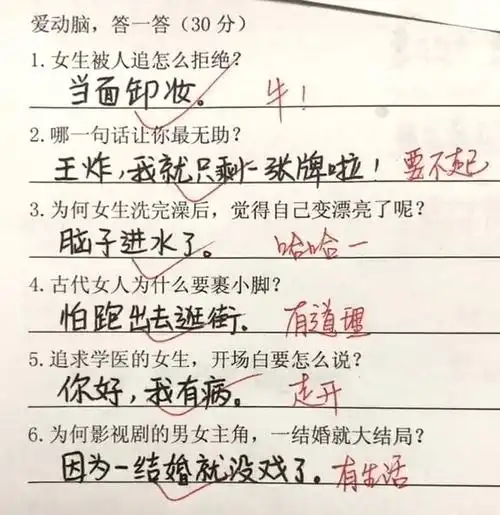 爱动脑，答一答（30分）
1.女生被人追怎么拒绝？
当面卸妆。 牛！
2.哪一句话让你最无助？
王炸，我就只剩一张牌啦！ 要不起
3.为何女生洗完澡后，觉得自己变漂亮了呢？
脑子进水了。 哈哈一
4.古代女人为什么要裹小脚？
怕跑出去逛街. 有道理
5.追求学医的女生，开场白要怎么说？
你好，我有病。 走开
6.为何影视剧的男女主角，一结婚就大结局？
因为一结婚就没戏了。 有生活